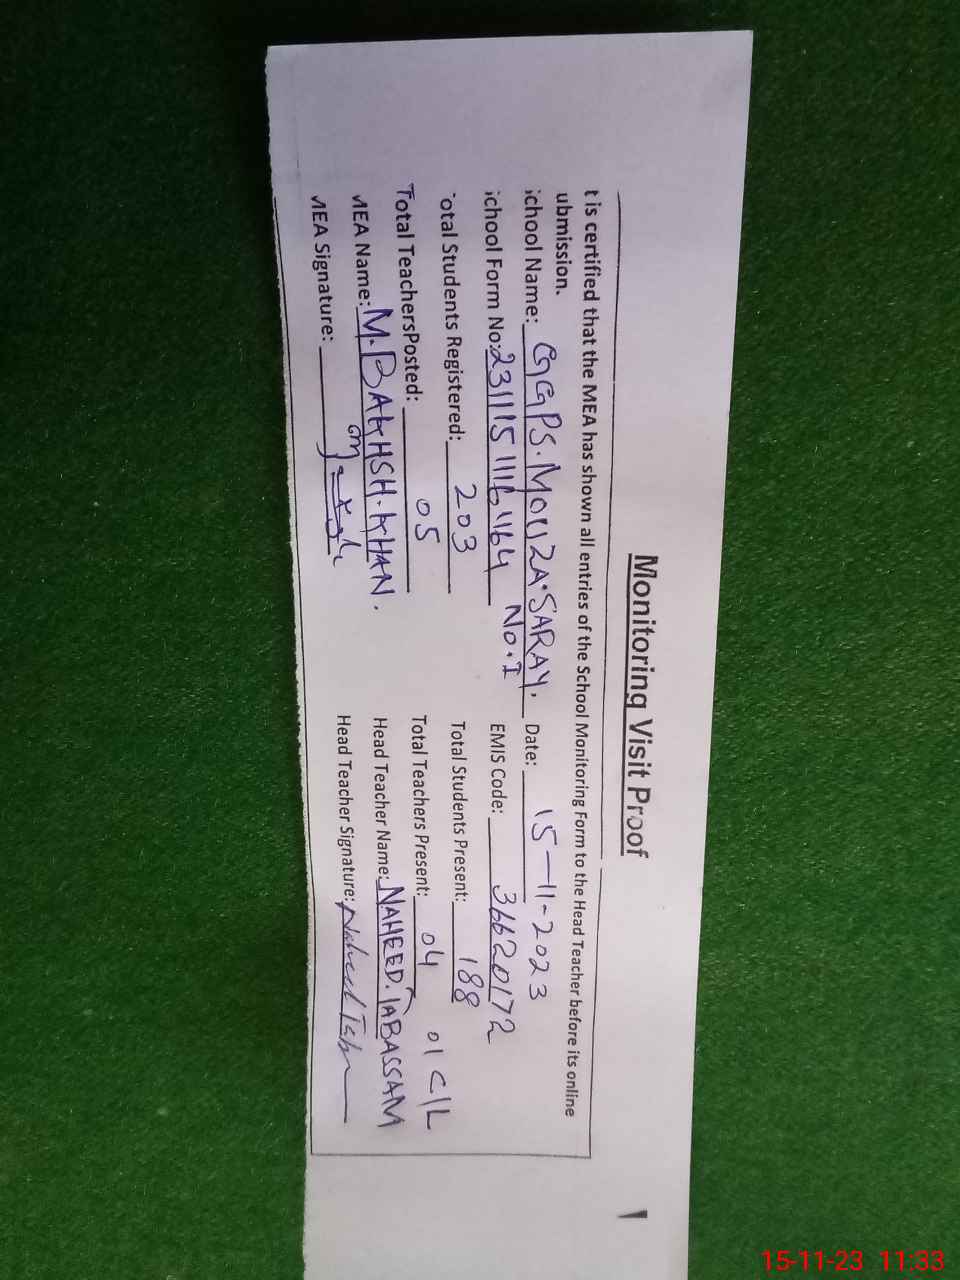 Monitoring Visit Proof
t is certified that the MEA has shown all entries of the School Monitoring Form to the Head Teacher before its online
ubmission.
chool Name: GGPS. MOUZA. SARAY. Date: 15-11-2023
No. I
chool Form No: 231115 EMIS Code: 36620172
otal Students Registered: 203 Total Students Present: 188
Total TeachersPosted: 05 Total Teachers Present: 04 01 C/L
MEA Name: M. BAKHSH. KHAN. Head Teacher Name: NAHEED. TABASSAM
MEA Signature: Head Teacher Signature: Naheed
15-11-23 11:33